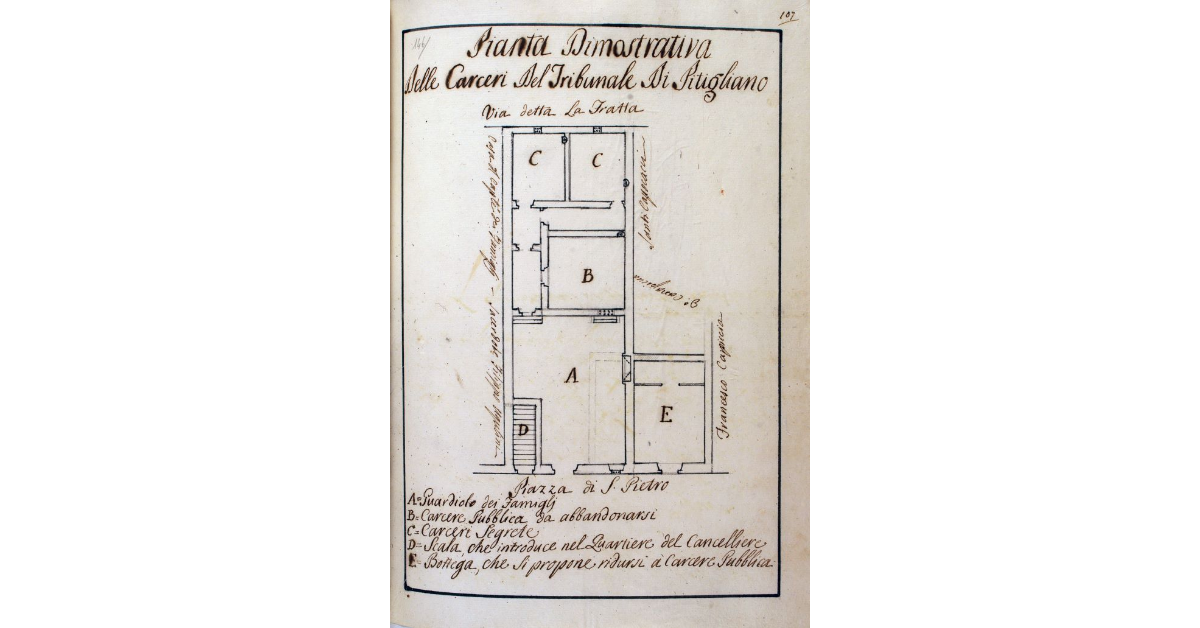 107
146
Pianta Dimostrativa
Delle Carceri Del Tribunale Di Pitigliano
Via detta La Fratta
C
C
Santi Capuccini
B
A
E
Francesco Capuccia
D
Piazza di S. Pietro
A= Guardiolo dei Famigli
B= Carcere Pubblica da abbandonarsi
C= Carceri Segrete
D= Scala, che introduce nel Quartiere del Cancelliere
E= Bottega, che si propone ridursi a Carcere Pubblica